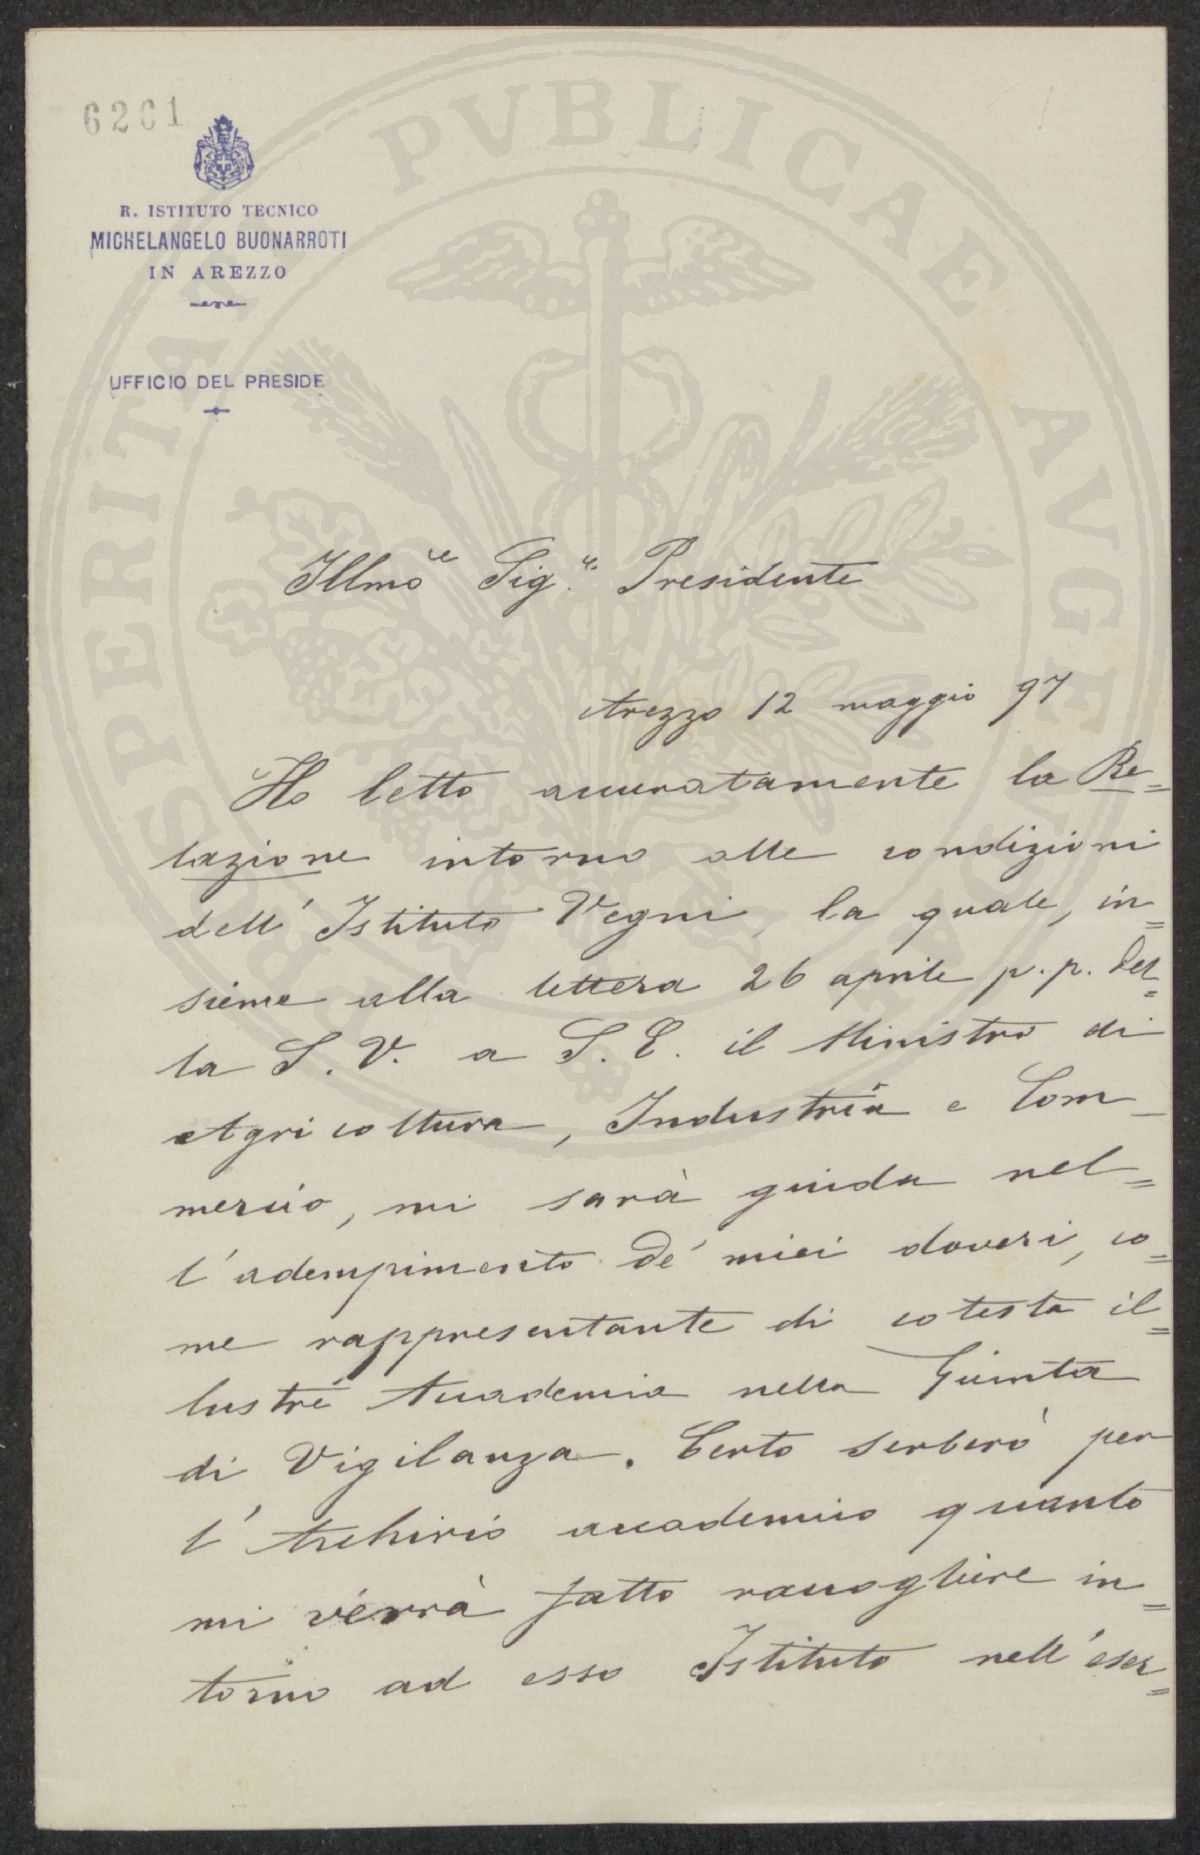 6261
R. ISTITUTO TECNICO
MICHELANGELO BUONARROTI
IN AREZZO
UFFICIO DEL PRESIDE
PROSPERITATI PVBLICAE AVGENDAE
Illmo Sig.re Presidente
Arezzo 12 maggio 97
Ho letto accuratamente la Re=
lazione intorno alle condizioni
dell'Istituto Vegni, la quale, in=
sieme alla lettera 26 aprile p.p. del=
la S. V. a S. E. il Ministro di
Agricoltura, Industria e Com-
mercio, mi sarà guida nel=
l'adempimento de' miei doveri, co=
me rappresentante di cotesta il=
lustre Accademia nella Giunta
di Vigilanza. Certo serberò per
l'Archivio accademico quanto
mi verrà fatto raccogliere in=
torno ad esso Istituto nell'eser=